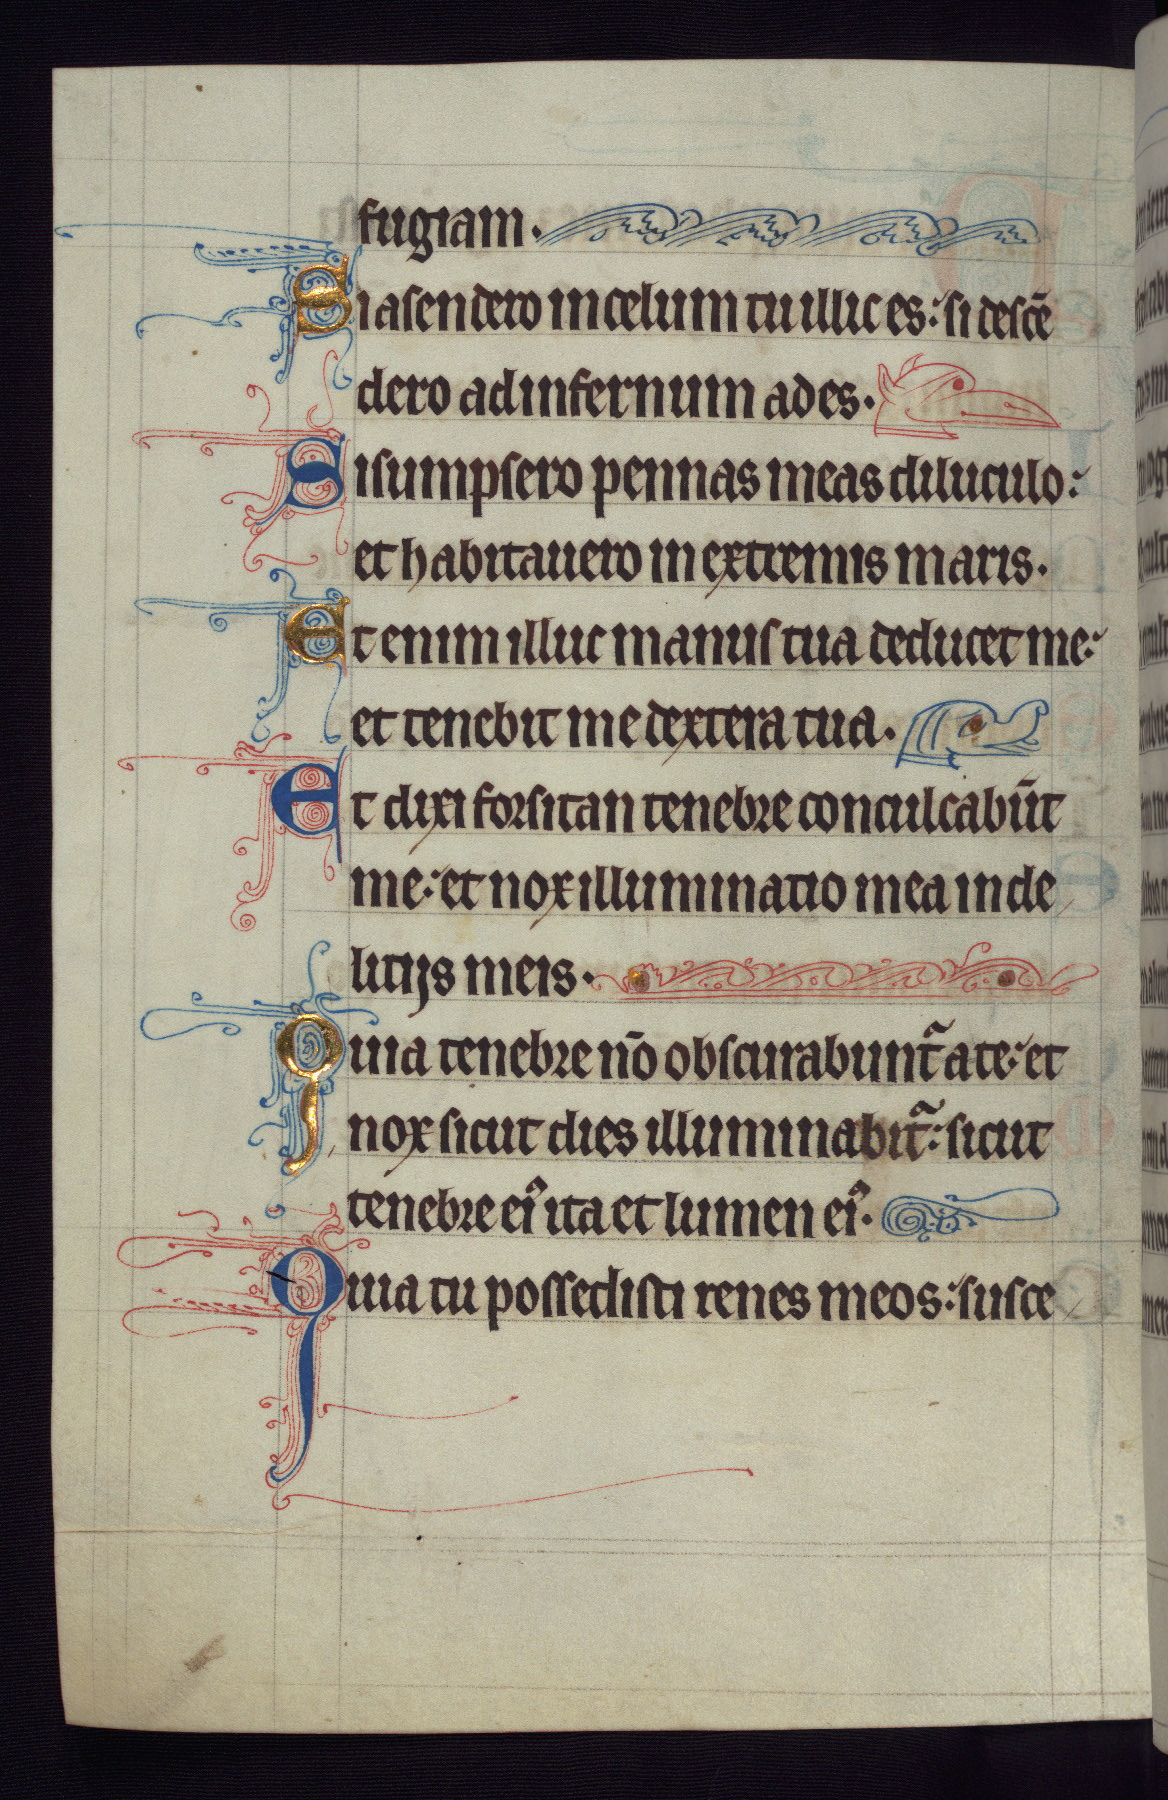 fugiam.
Si asendero in celum tu illic es: si descē
dero ad infernum ades.
Si sumpsero pennas meas diluculo:
et habitauero in extremis maris.
Et enim illuc manus tua deducet me:
et tenebit me dextera tua.
Et dixi forsitan tenebre conculcabūt
me: et nox illuminatio mea in de
litijs meis.
Quia tenebre nō obscurabunt᷑ a te: et
nox sicut dies illuminabit᷑: sicut
tenebre eiꝰ ita et lumen eiꝰ.
Quia tu possedisti renes meos: susce